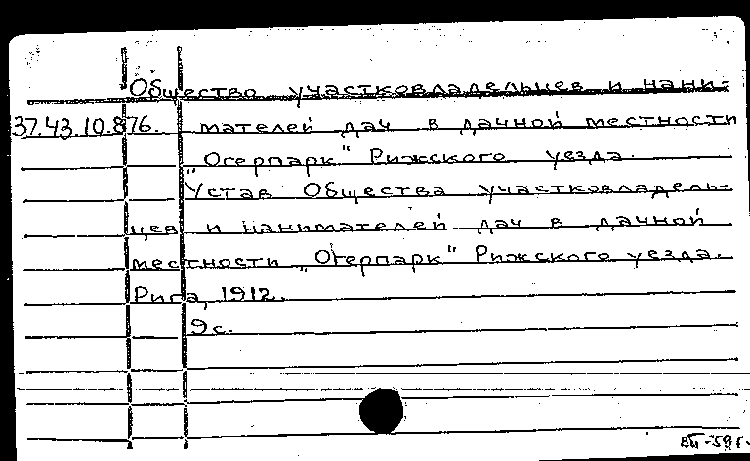 Общество участковладельцев и нани-
37.43.10.876. мателей дач в дачной местности
„Огерпарк" Рижского уезда.
Устав Общества участковладель-
цев и нанимателей дач в дачной
местности „Огерпарк" Рижского уезда.
Рига, 1912.
9 с.